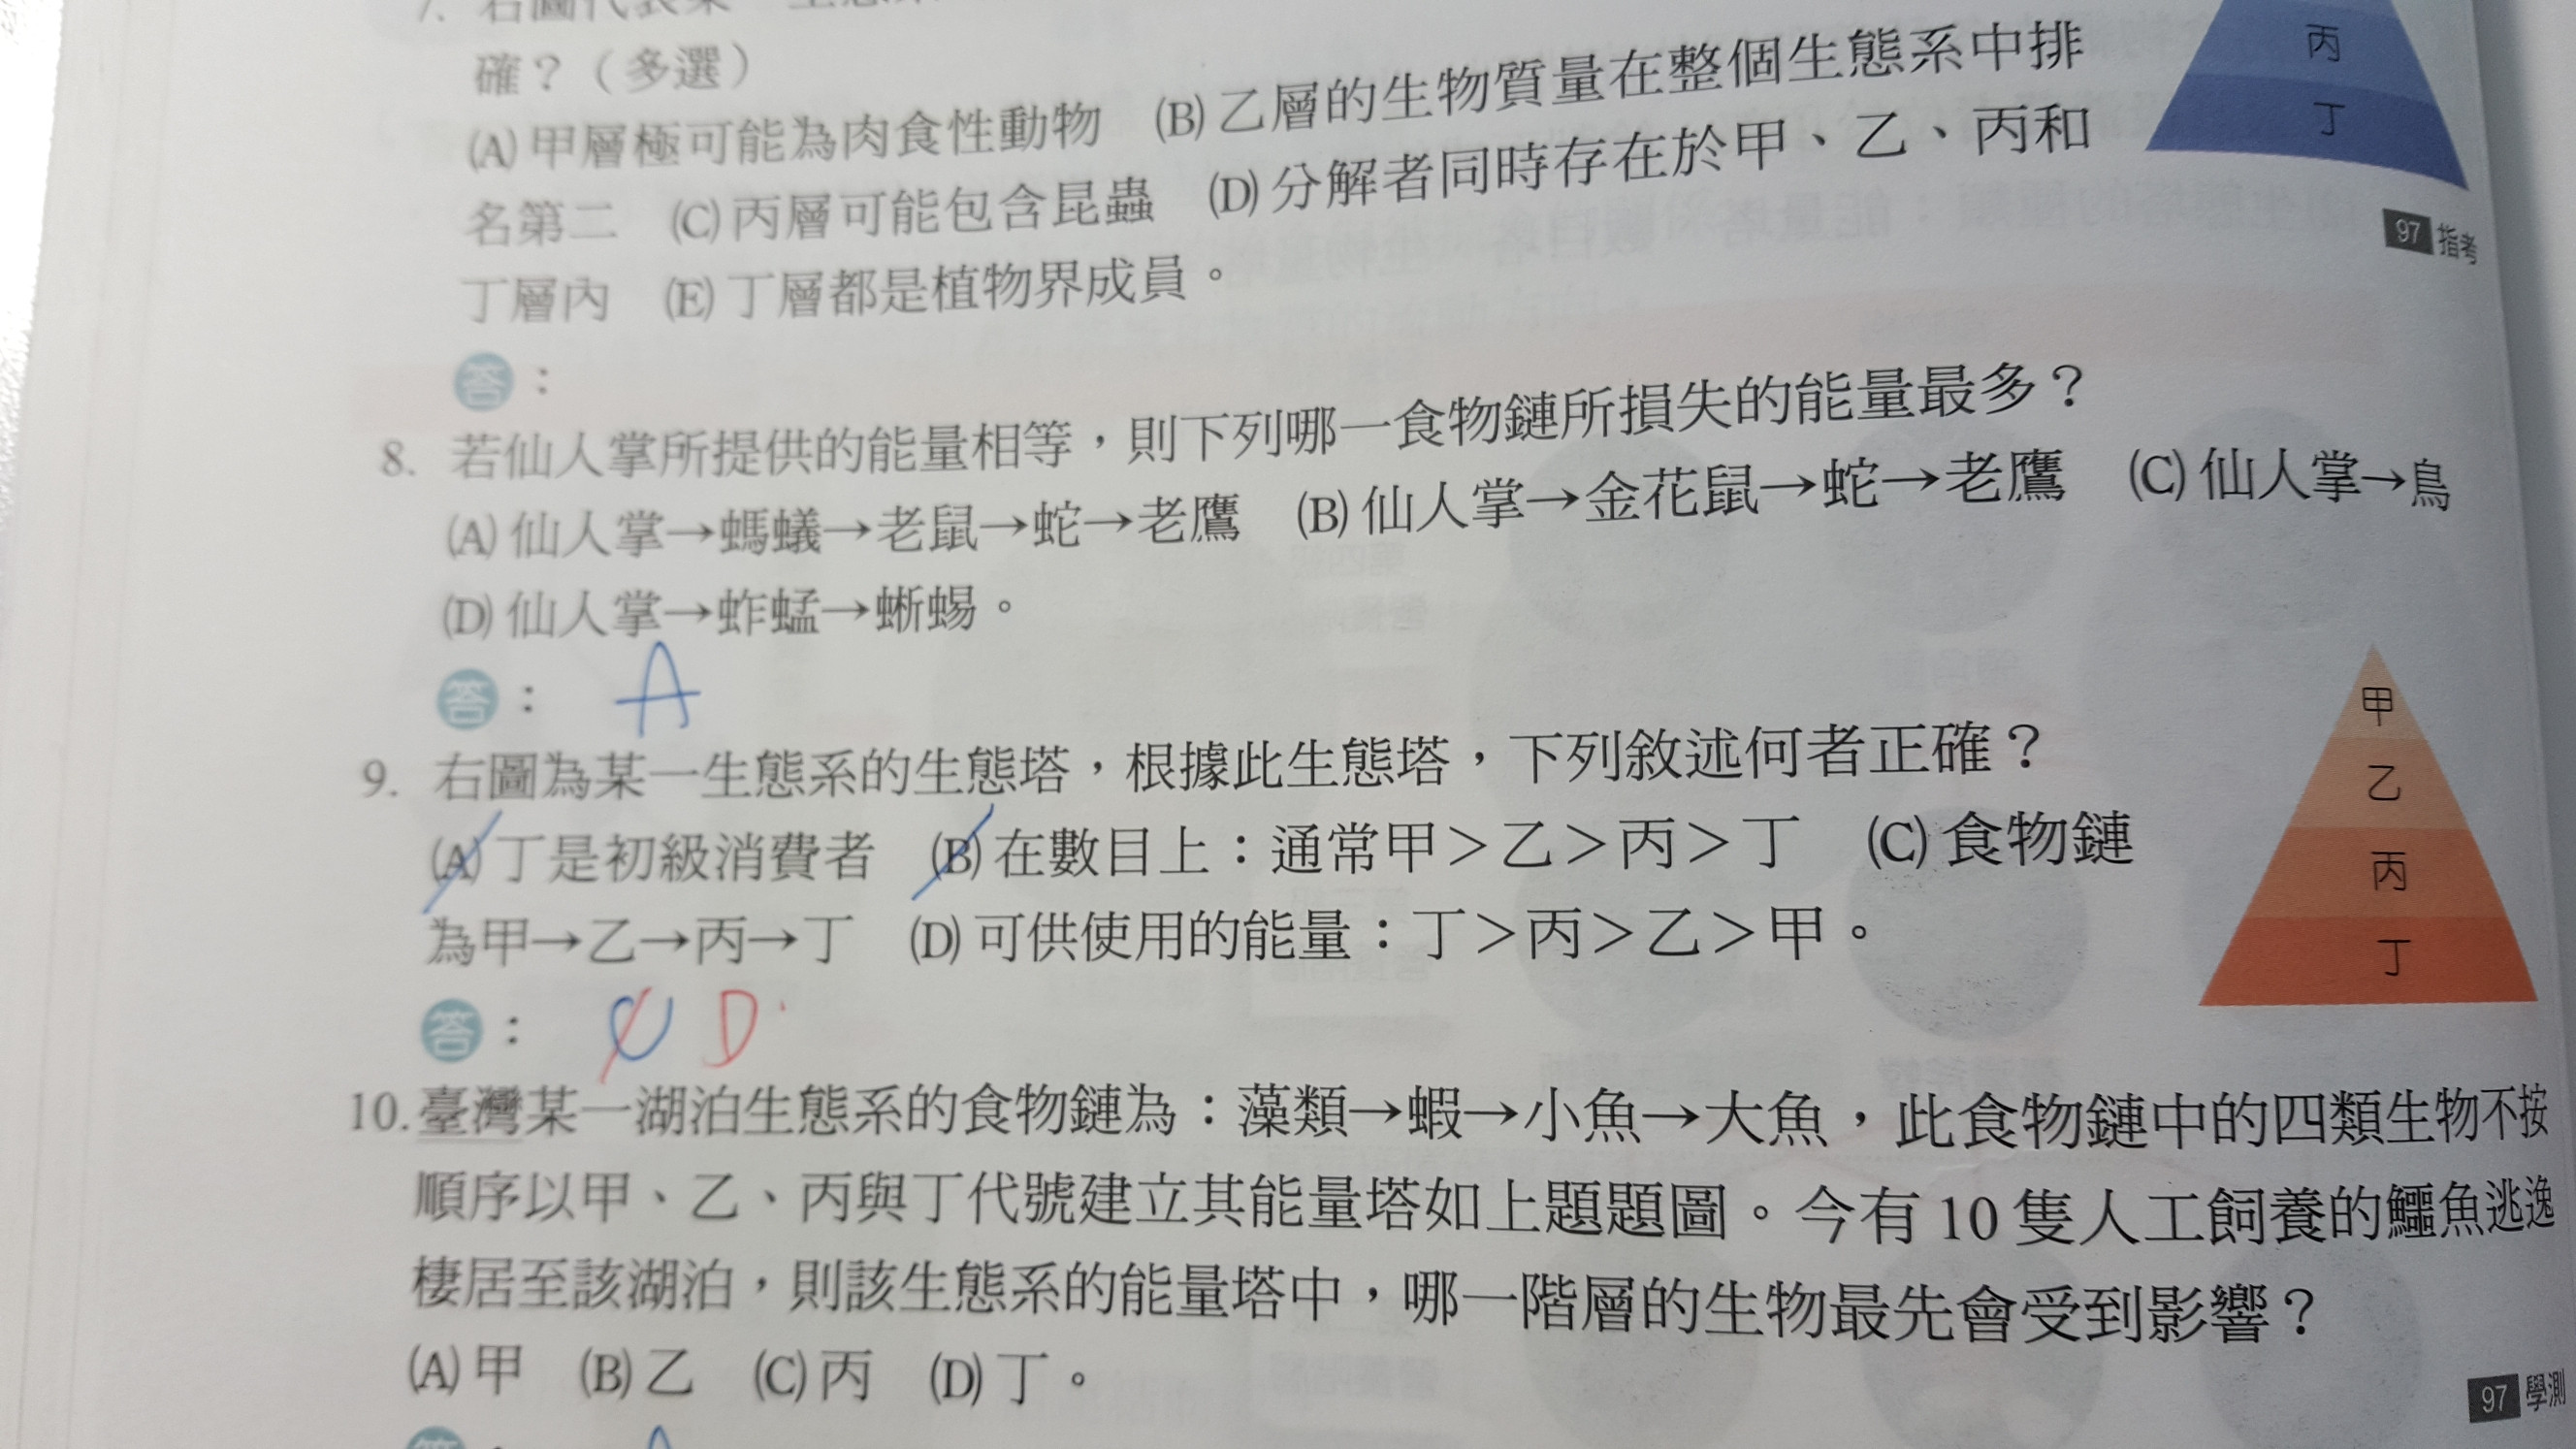 7. 右圖代表某一生態系
確？（多選）
(A) 甲層極可能為肉食性動物 (B) 乙層的生物質量在整個生態系中排
名第二 (C) 丙層可能包含昆蟲 (D) 分解者同時存在於甲、乙、丙和
丁層內 (E) 丁層都是植物界成員。
丙
丁
97 指考
答：
8. 若仙人掌所提供的能量相等，則下列哪一食物鏈所損失的能量最多？
(A) 仙人掌→螞蟻→老鼠→蛇→老鷹 (B) 仙人掌→金花鼠→蛇→老鷹 (C) 仙人掌→鳥
(D) 仙人掌→蚱蜢→蜥蜴。
答： A
9. 右圖為某一生態系的生態塔，根據此生態塔，下列敘述何者正確？
(A) 丁是初級消費者 (B) 在數目上：通常甲＞乙＞丙＞丁 (C) 食物鏈
為甲→乙→丙→丁 (D) 可供使用的能量：丁＞丙＞乙＞甲。
甲
乙
丙
丁
答： C D
10. 臺灣某一湖泊生態系的食物鏈為：藻類→蝦→小魚→大魚，此食物鏈中的四類生物不按
順序以甲、乙、丙與丁代號建立其能量塔如上題題圖。今有 10 隻人工飼養的鱷魚逃逸
棲居至該湖泊，則該生態系的能量塔中，哪一階層的生物最先會受到影響？
(A) 甲 (B) 乙 (C) 丙 (D) 丁。
97 學測
答：